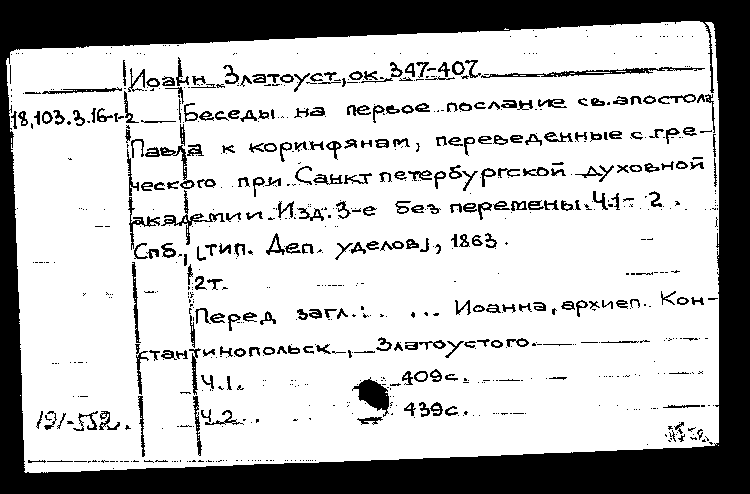 Иоанн Златоуст, ок. 347-407
18,103.3.16-1-2 Беседы на первое послание св. апостола
Павла к коринфянам, переведенные с гре-
ческого при Санктпетербургской духовной
академии. Изд. 3-е без перемены. Ч.1- 2.
Спб., [тип. Деп. уделов], 1863.
2т.
Перед загл.: ... Иоанна, архиеп. Кон-
стантинопольск., Златоустого.
Ч.1. 409с.
191-552. Ч.2. 439с.